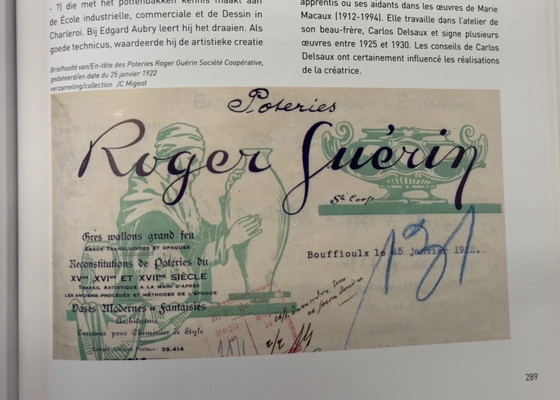 - ?] die met het pottenbakken kennis maakt aan
de École industrielle, commerciale et de Dessin in
Charleroi. Bij Edgard Aubry leert hij het draaien. Als
goede technicus, waardeerde hij de artistieke creatie
Briefhoofd van/En-tête des Poteries Roger Guérin Société Coopérative,
gedateerd/en date du 25 janvier 1922
verzameling/collection JC Migeot
apprentis ou ses aidants dans les œuvres de Marie
Macaux (1912-1994). Elle travaille dans l'atelier de
son beau-frère, Carlos Delsaux et signe plusieurs
œuvres entre 1925 et 1930. Les conseils de Carlos
Delsaux ont certainement influencé les réalisations
de la créatrice.
Poteries
Roger Guérin
Sté Coop
Grès wallons grand feu
Emaux Translucides et opaques
Reconstitutions de Poteries du
XVme, XVIme ET XVIIme SIÈCLE
Travail Artistique a la Main d'après
les anciens procédés et méthodes de l'époque
Vases Modernes et Fantaisies
Architecture
Carreaux pour Cheminées de Style
Compte Chèques Postaux : 39.414
Bouffioulx le 25 janvier 1922.
131
289